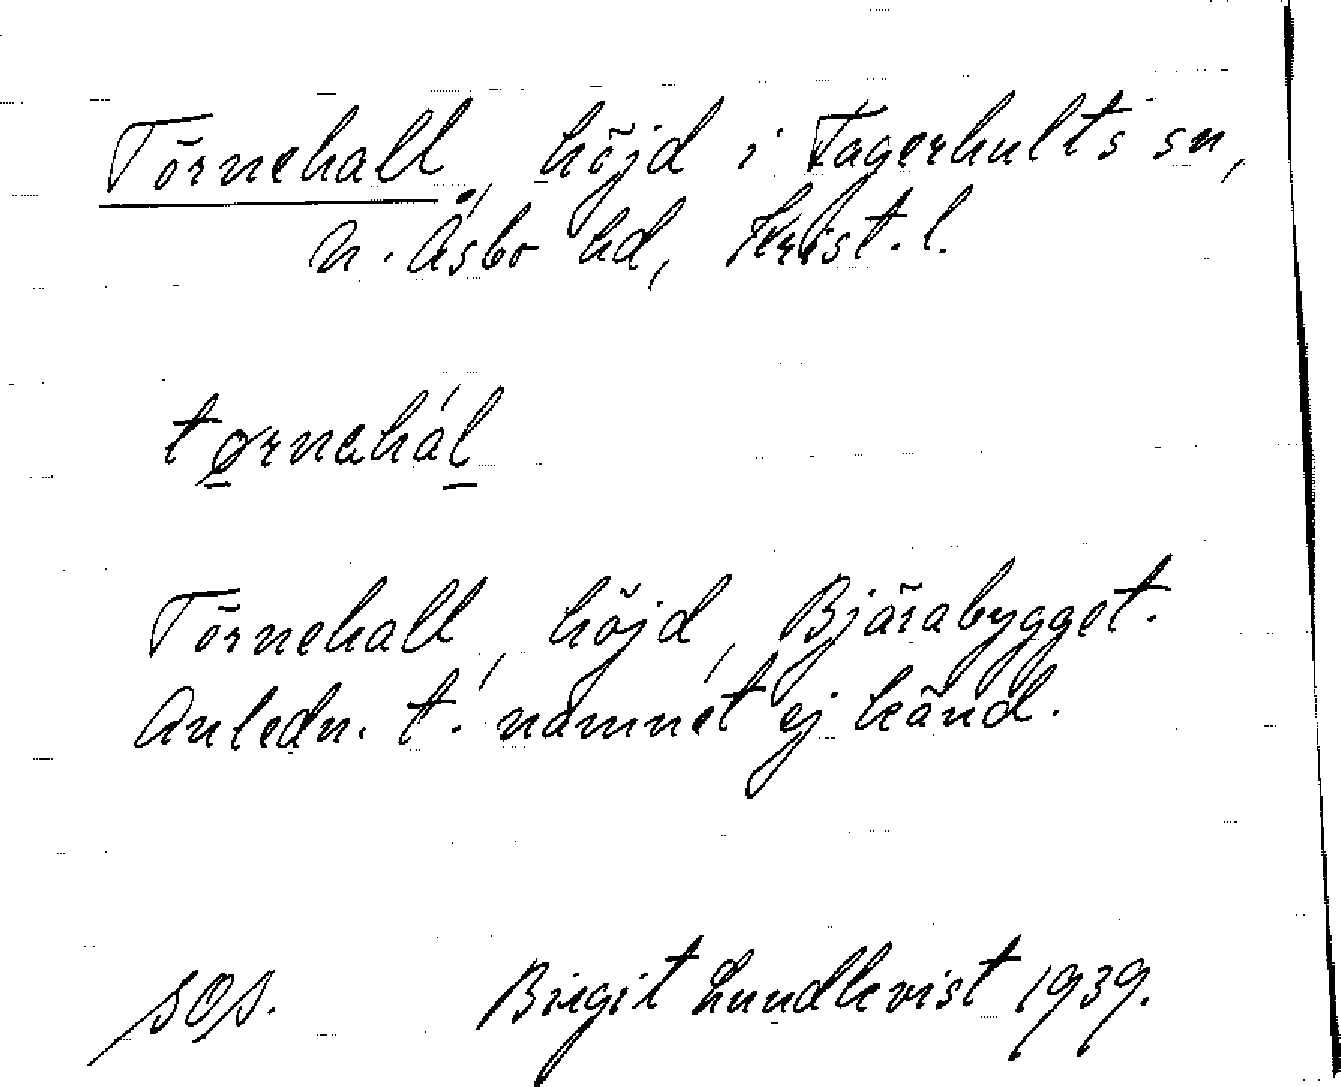 Törnehall, höjd i Fagerhults sn,
N. Åsbo hd, Krist. l.
tørnəhál
Törnehall, höjd, Bjärabygget.
Anledn. t. namnet ej känd.
Birgit Lundkvist 1939.